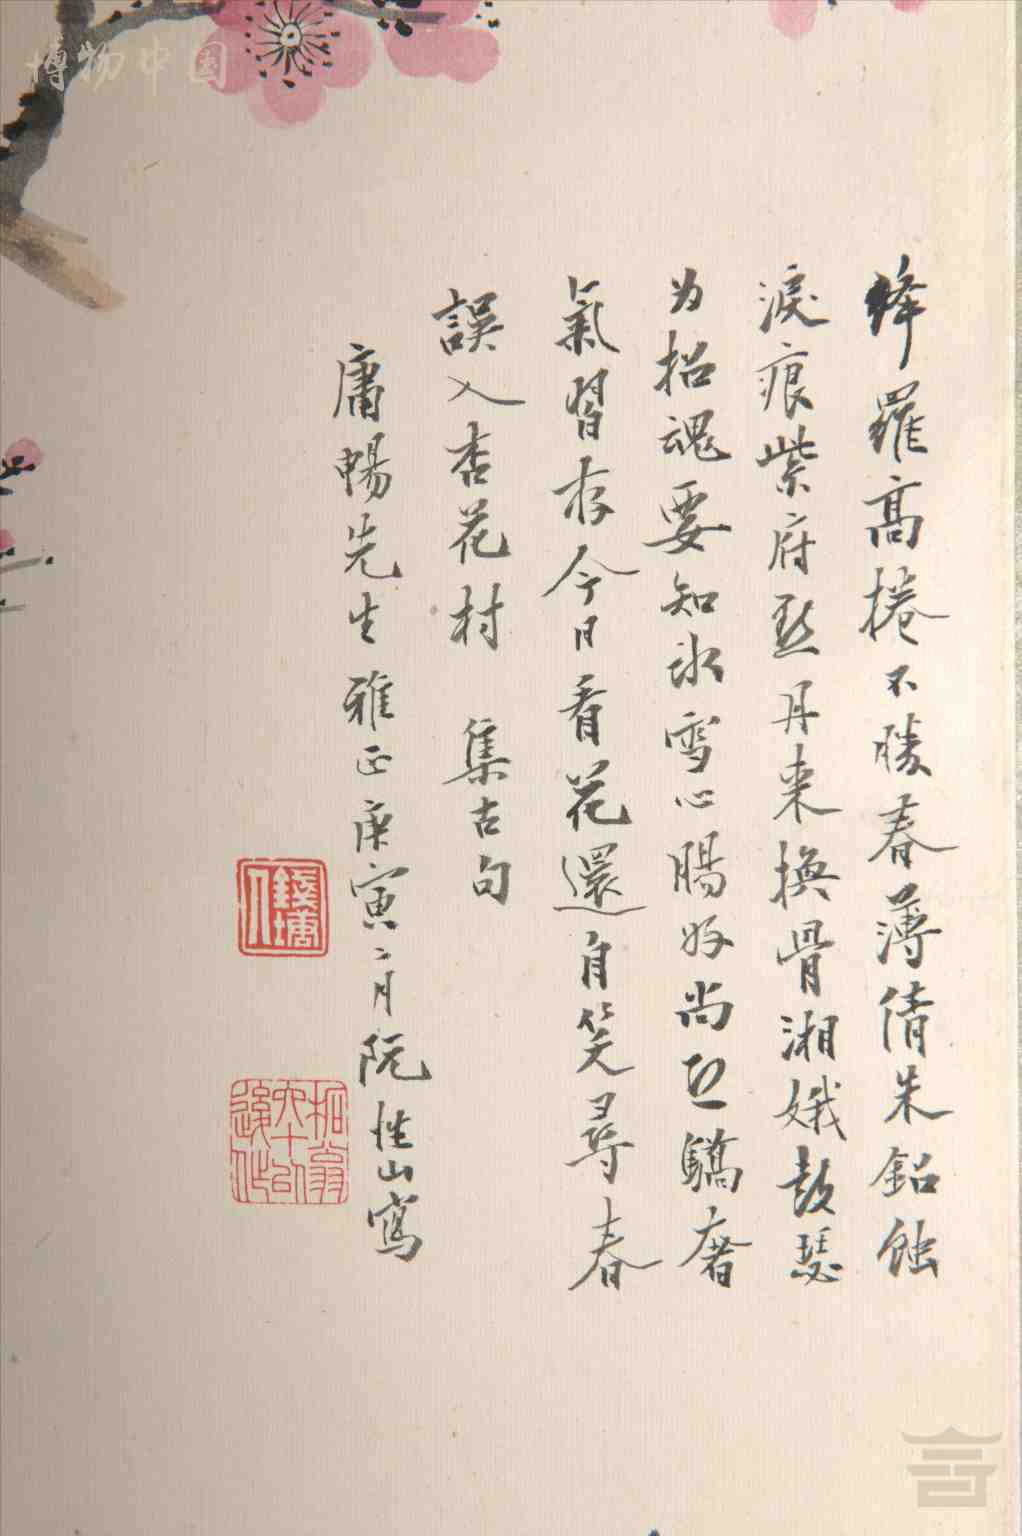 博物中国
絳羅高捲不勝春薄倩朱鉛蝕
淚痕紫府丹來換骨湘娥鼓瑟
为招魂要知冰雪心腸好尚恐驕奢
氣習存今日看花還自笑尋春
誤入杏花村 集古句
庸暢先生雅正庚寅二月阮性山寫
錢塘人